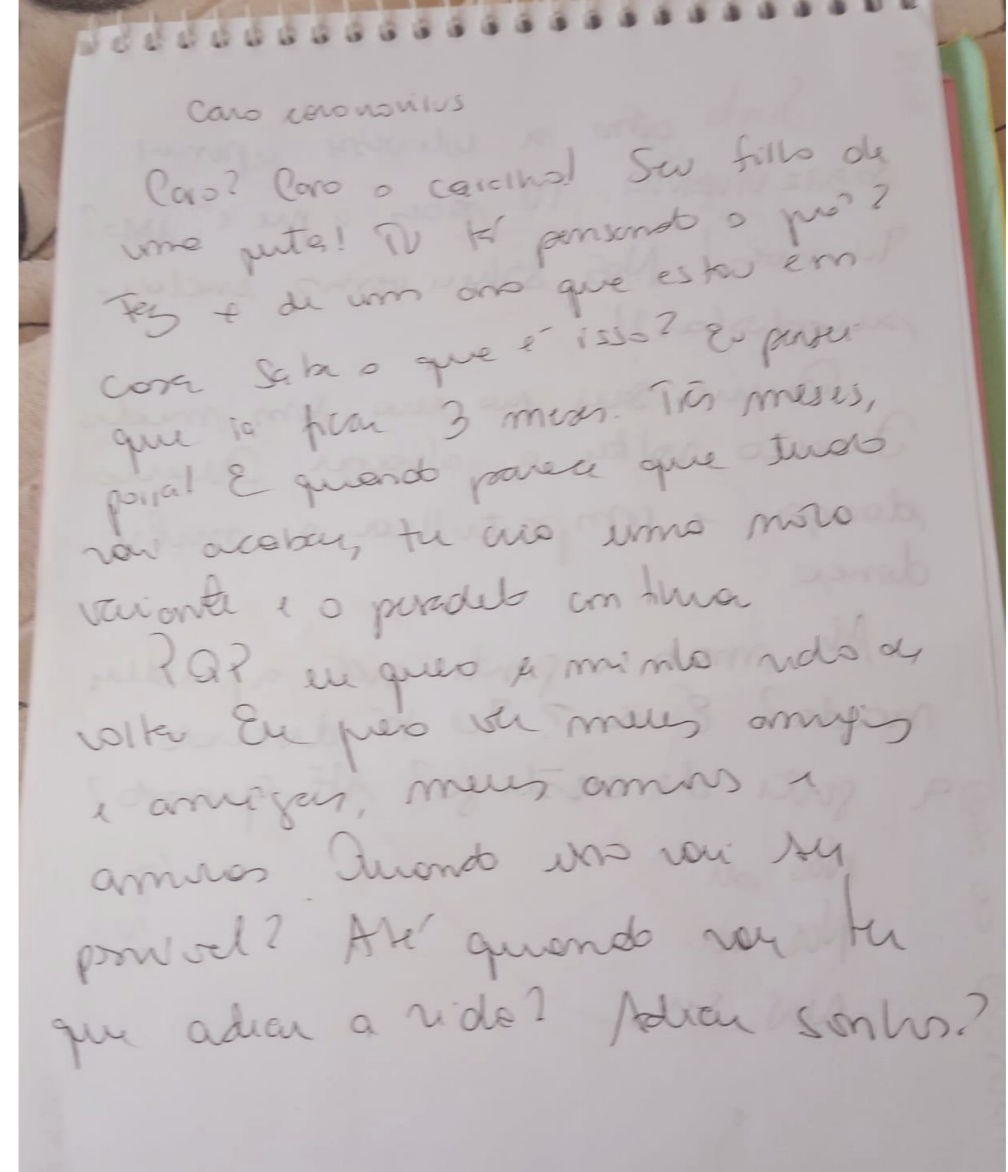 Caro coronovirus
Caro? Caro o caralho! Seu filho de
uma puta! Tu tá pensando o que?
Fez + de um ano que estou em
casa Sabe o que é isso? Eu pensei
que ia ficar 3 meses. Três meses,
porra! E quando parece que tudo
vai acabar, tu cria uma nova
variante e o pesadelo continua
PQP eu quero a minha vida de
volta Eu quero ver meus amigos
e amigas, meus amores e
amoras Quando isso vai ser
possível? Até quando vou ter
que adiar a vida? Adiar sonhos?